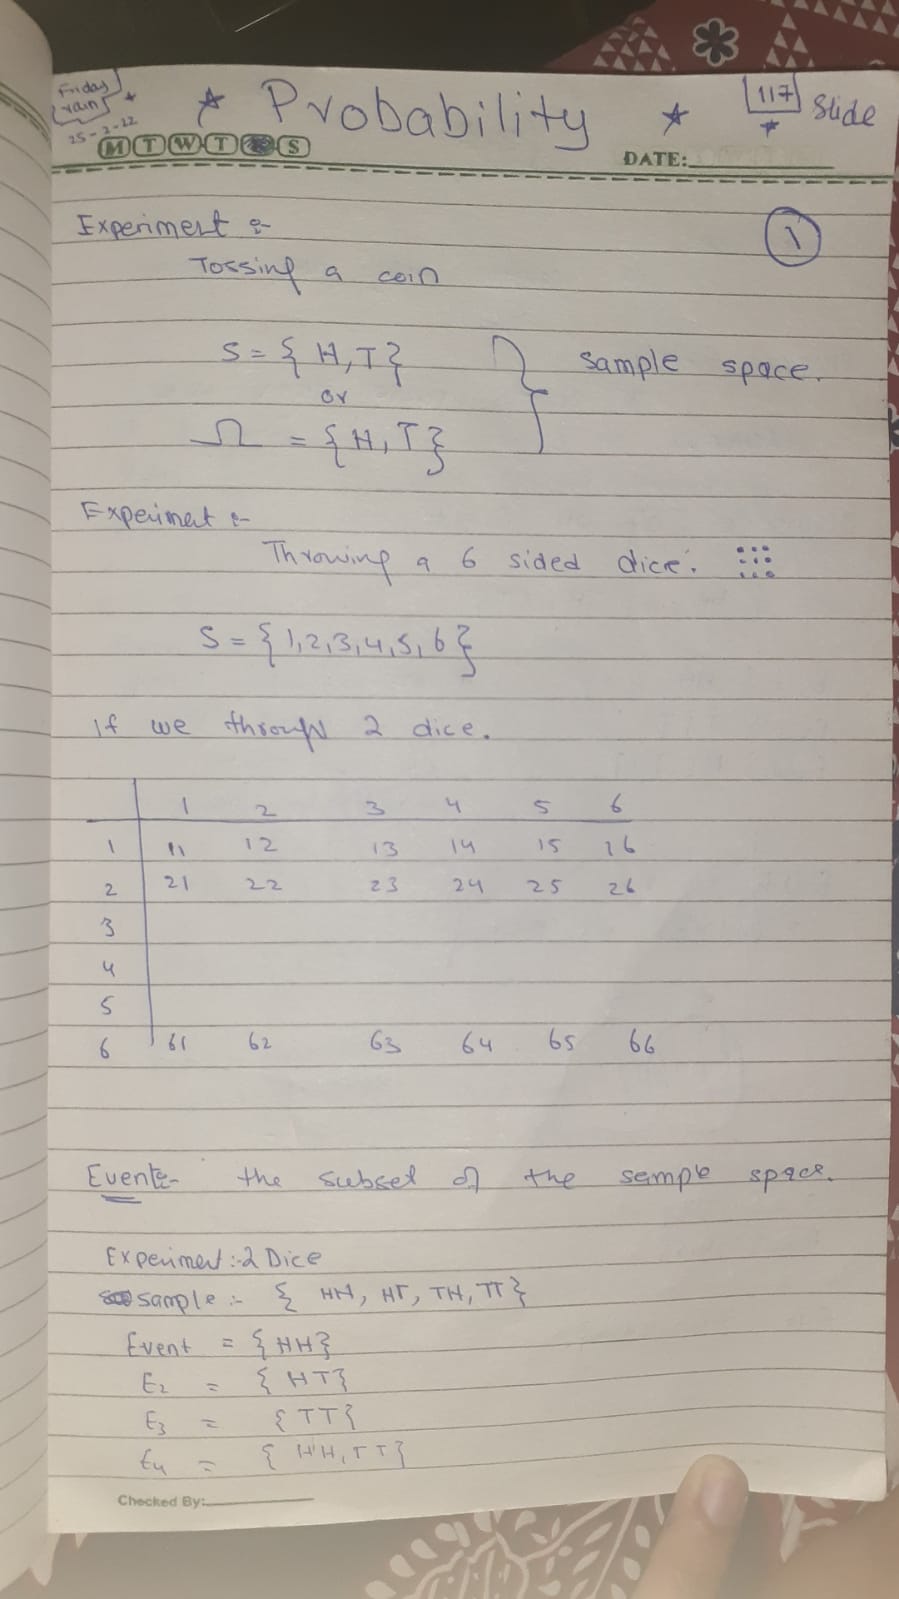 Friday
rain
25-2-22
* Probability *
117 Slide
M T W T S
DATE:
1
Experiment :-
Tossing a coin
S = { H, T }
or
Ω = { H, T }
Sample space.
Experimet :-
Throwing a 6 sided dice.
S = { 1,2,3,4,5,6 }
If we 2 dice.
1 2 3 4 5 6
1 11 12 13 14 15 16
2 21 22 23 24 25 26
3
4
5
6 61 62 63 64 65 66
Event:- the subset of the sample space.
Experiment :- 2 Dice
sample :- { HH, HT, TH, TT }
Event = { HH }
E2 = { HT }
E3 = { TT }
E4 = { HH, TT }
Checked By: